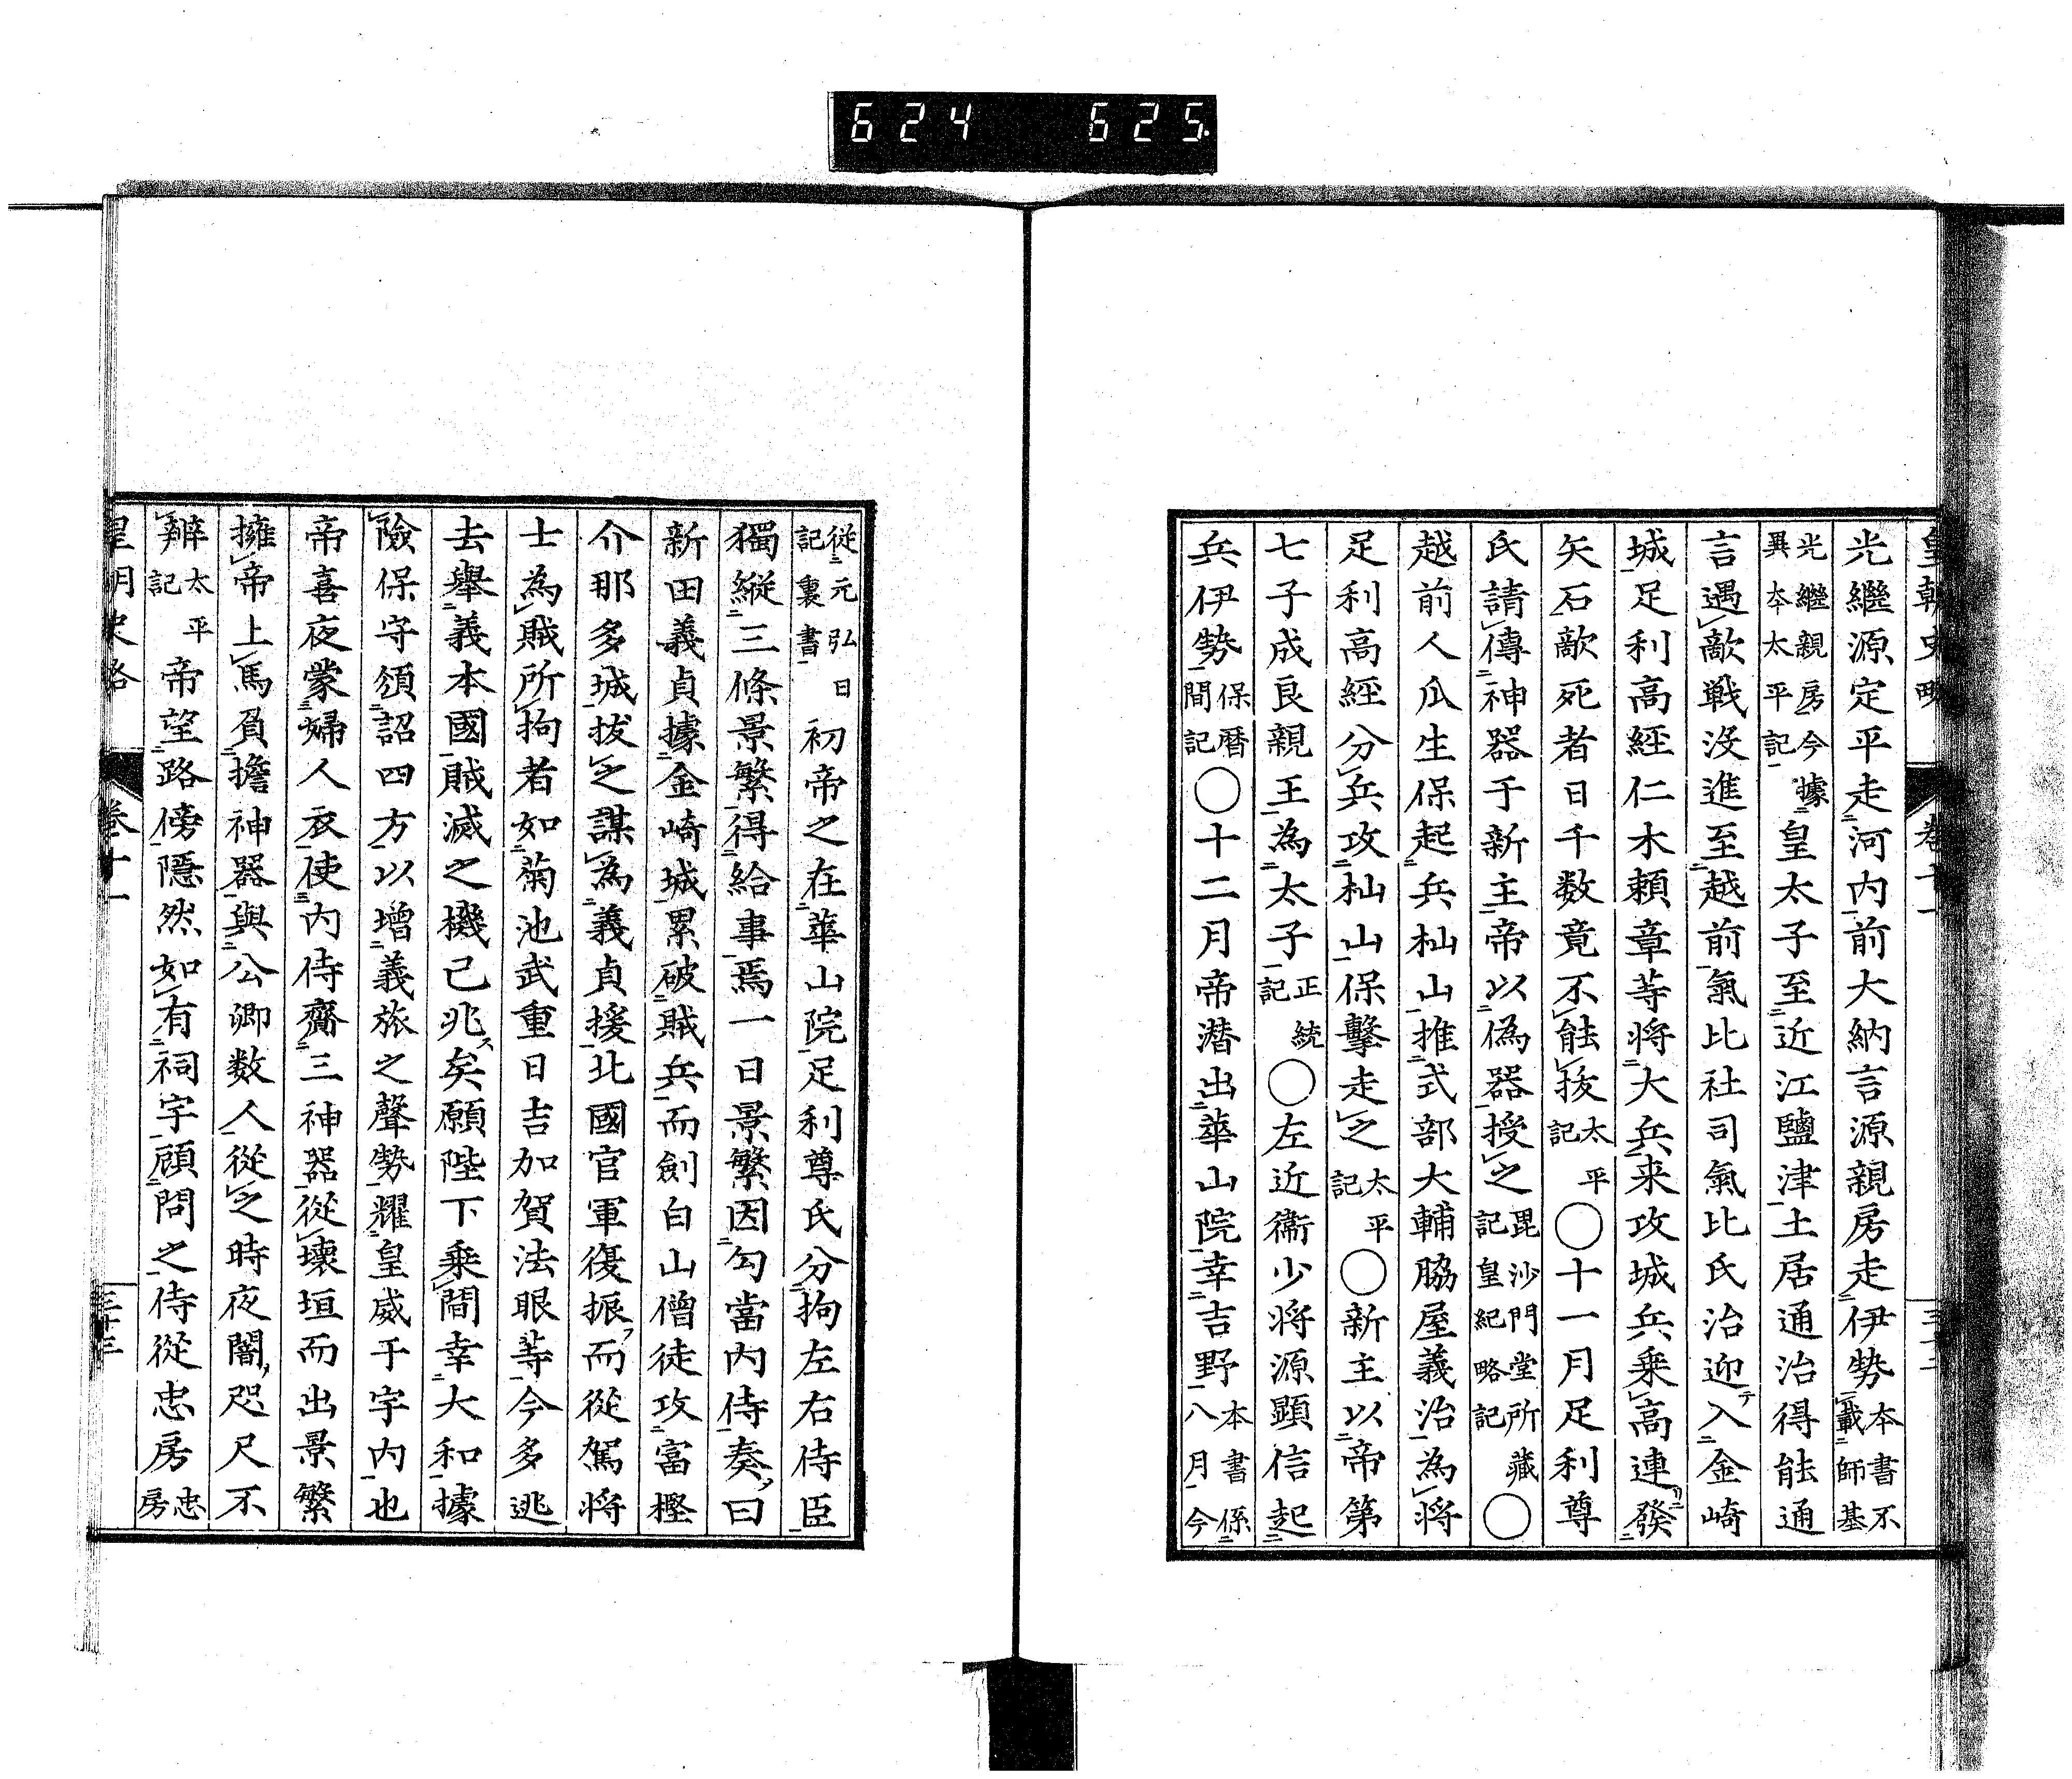 624 625
皇朝史略 卷十一 三十二
光繼源定平走河內前大納言源親房走伊勢本書不載師基
光繼親房今據異本太平記皇太子至近江鹽津土居通治得能通
言遇敵戰沒進至越前氣比社司氣比氏治迎テ入金崎
城足利高經仁木賴章等將大兵来攻城兵乘高連リニ發
矢石敵死者日千数竟不能拔太平記〇十一月足利尊
氏請傳神器于新主帝以偽器授之毘沙門堂所藏記皇紀略記〇
越前人瓜生保起兵杣山推式部大輔脇屋義治為將
足利高經分兵攻杣山保擊走之太平記〇新主以帝第
七子成良親王為太子正統記〇左近衞少將源顯信起
兵伊勢保曆間記〇十二月帝潜出華山院幸吉野本書係八月今
從元弘日記裏書初帝之在華山院足利尊氏分拘左右侍臣
獨縱三條景繁得給事焉一日景繁因勾當內侍奏曰
新田義貞據金崎城累破賊兵而劍白山僧徒攻富樫
介那多城拔之謀為義貞援北國官軍復振而從駕將
士為賊所拘者如菊池武重日吉加賀法眼等今多逃
去舉義本國賊滅之機已兆矣願陛下乘間幸大和據
險保守頒詔四方以增義旅之聲勢耀皇威于宇內也
帝喜夜蒙婦人衣使內侍齎三神器從壞垣而出景繁
擁帝上馬負擔神器與公卿数人從之時夜闇咫尺不
辨太平記帝望路傍隱然如有祠宇顧問之侍從忠房忠房
皇朝史略 卷十一 三十三